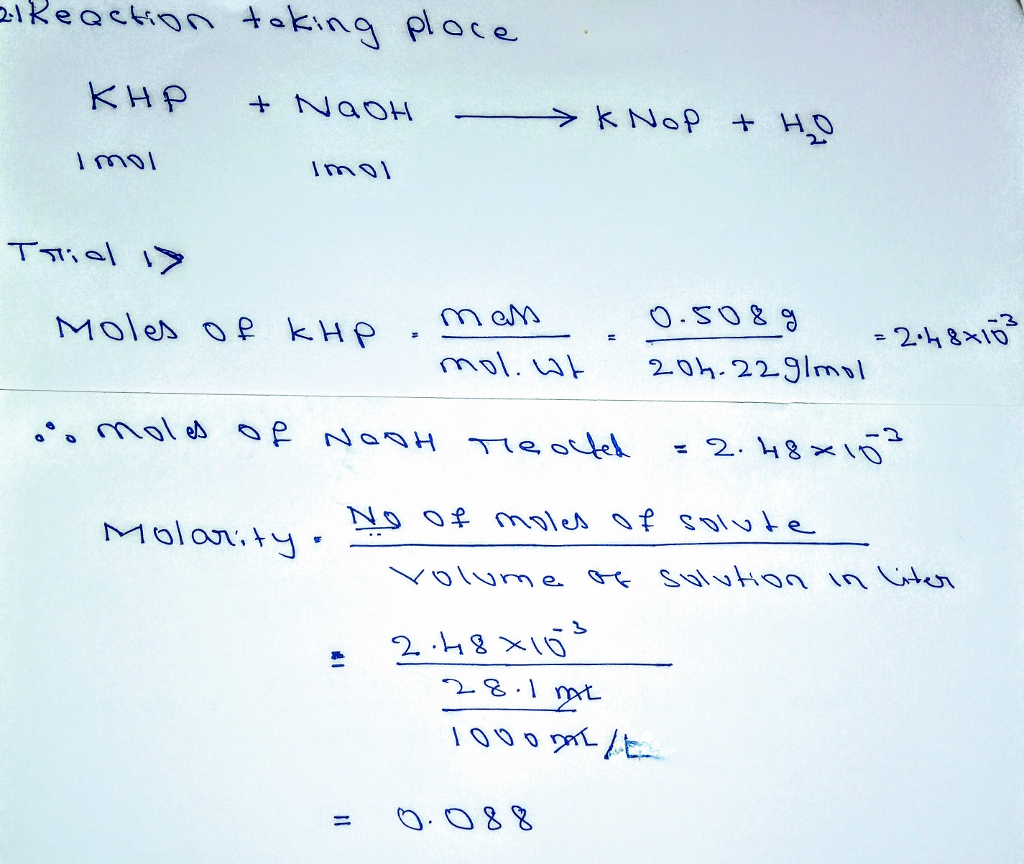 21 Reaction taking place
KHP + NaOH → KNaP + H2O
1mol 1mol
Trial 1>
Moles of KHP = mass / mol. wt = 0.508g / 204.22g/mol = 2.48x10^-3
∴ moles of NaOH reacted = 2.48x10^-3
Molarity = No of moles of solute / volume of solution in liter
= 2.48x10^-3 / (28.1 mL / 1000mL/L)
= 0.088